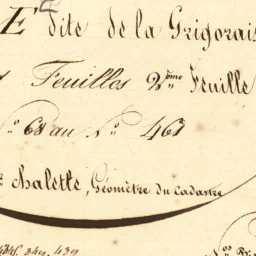 E dite de la Grigorais
Feuilles 2ème Feuille
No 68 au No 461
chalette, Géomètre du Cadastre